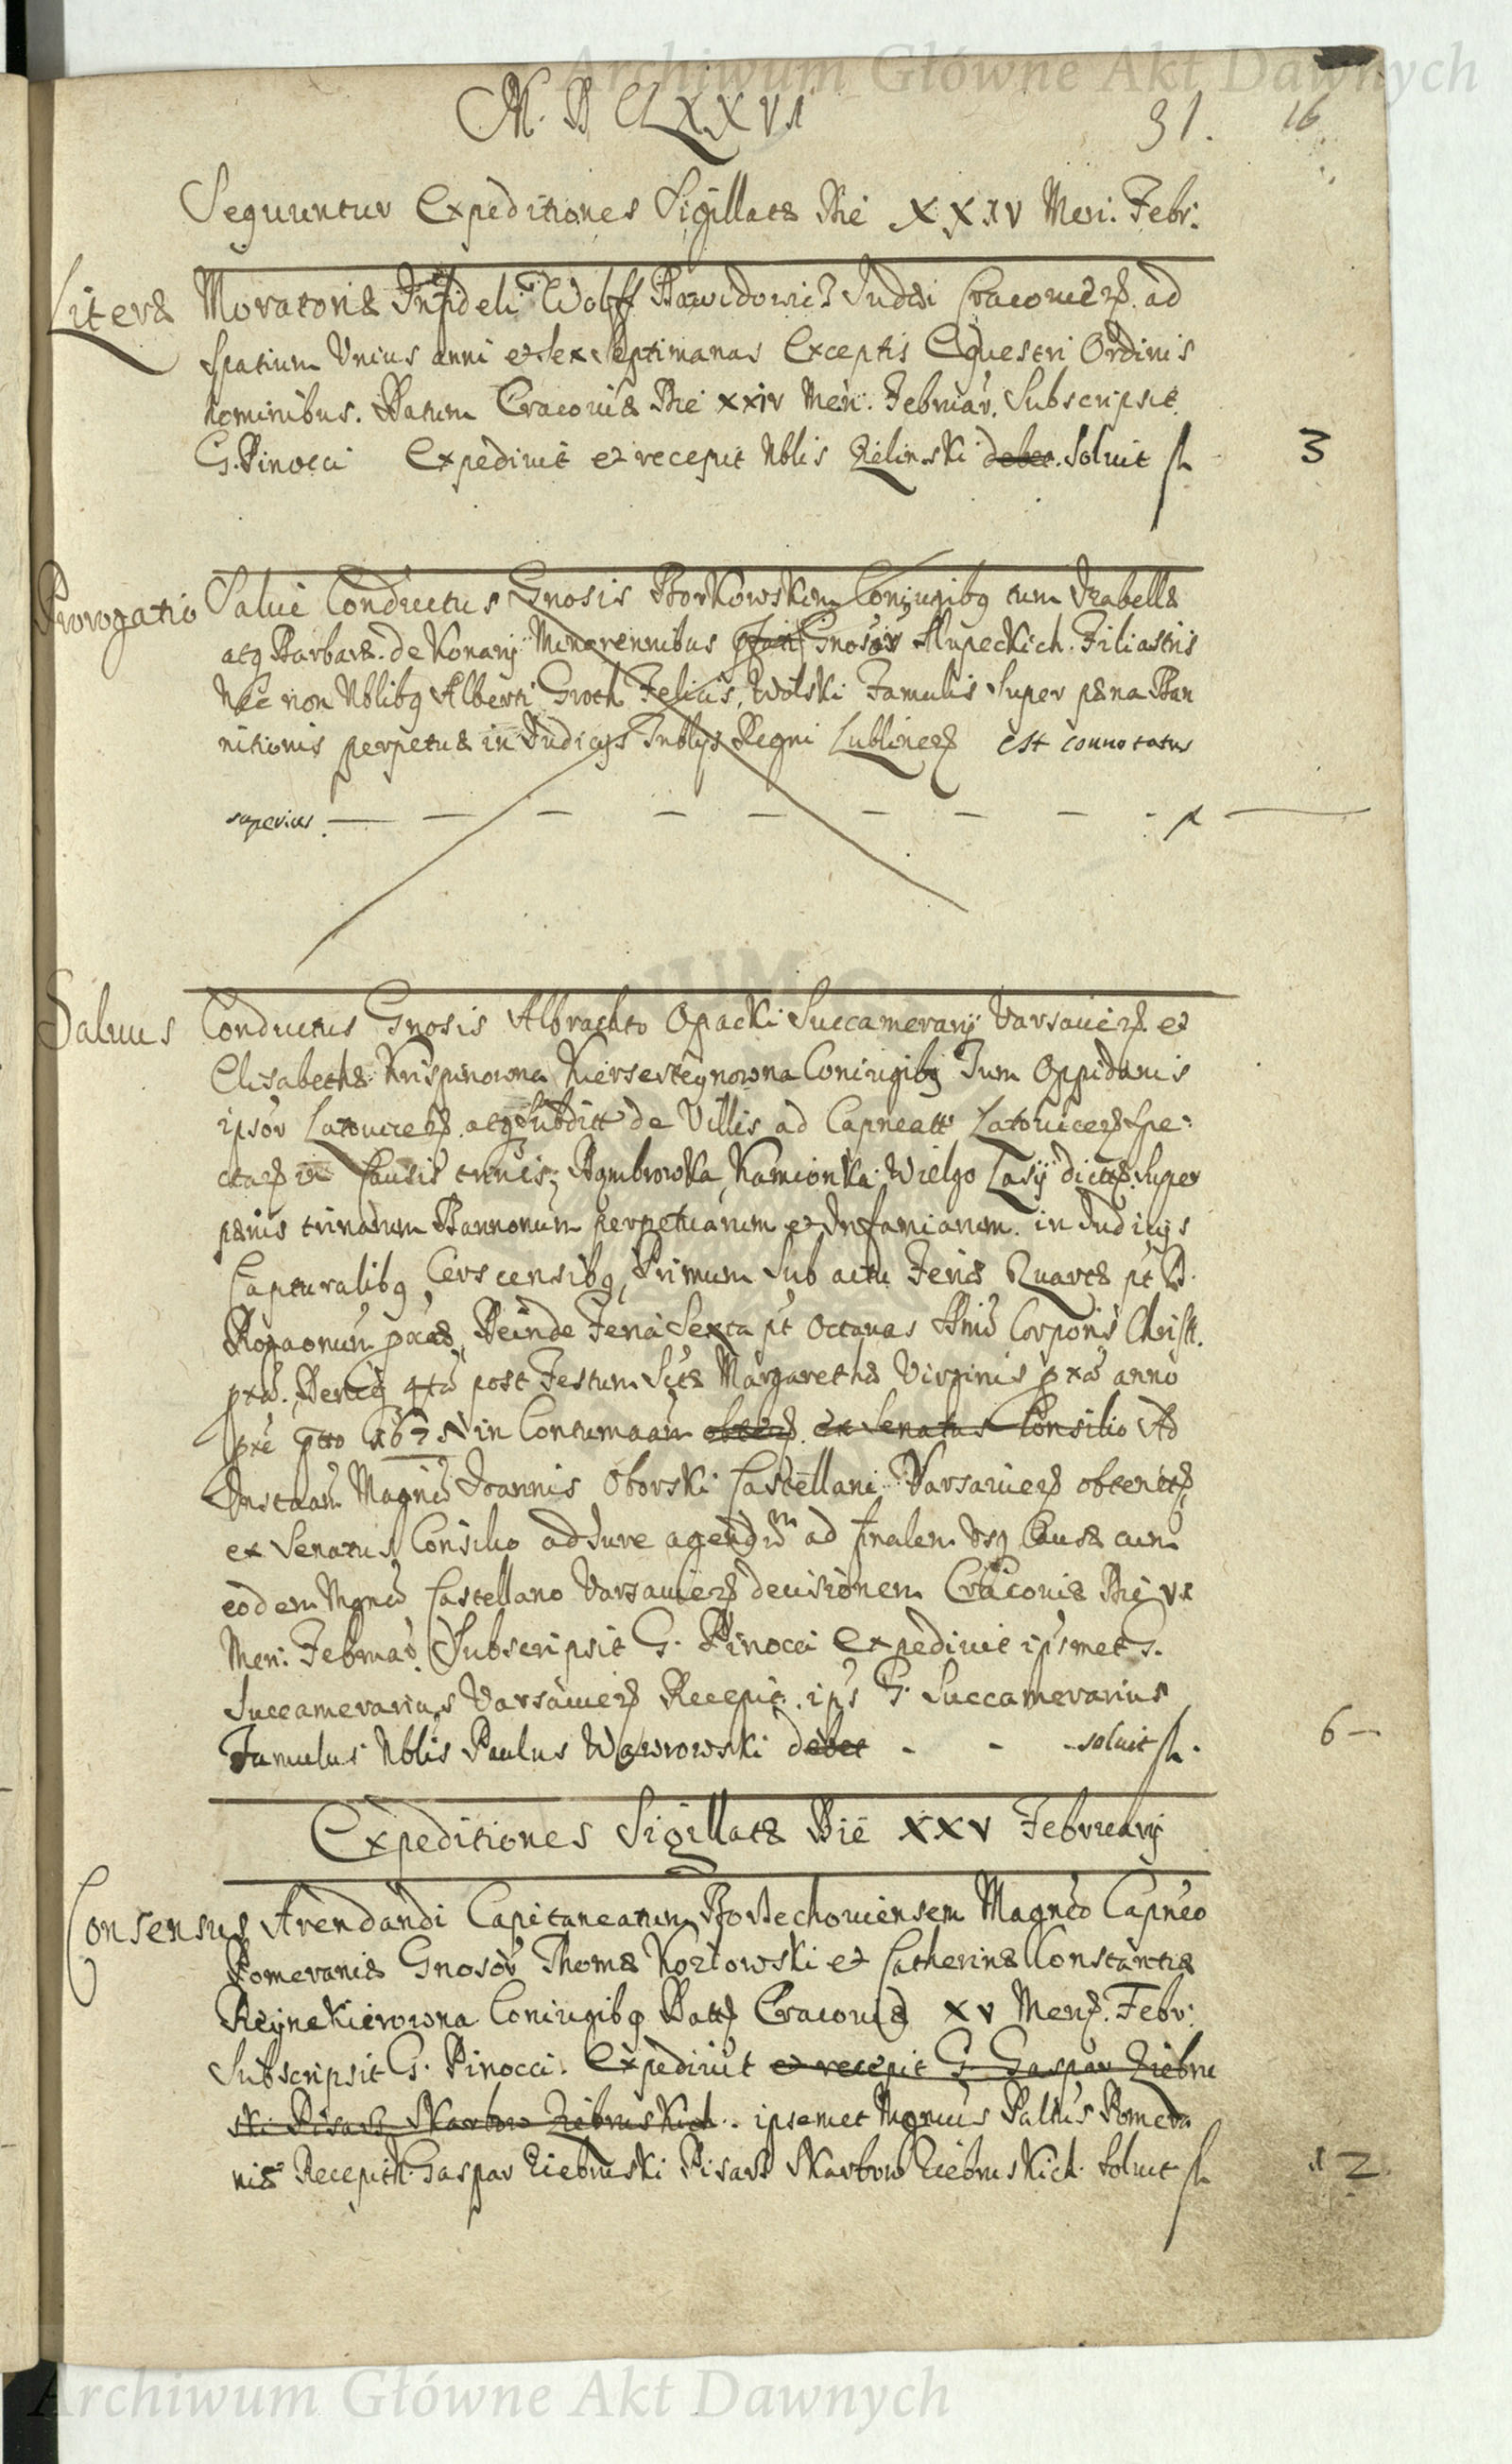 Archiwum Główne Akt Dawnych
M. D CLXXVI
31. 16
Sequuntur Expeditiones Sigillatæ Die XXIV Men. Febr:
Literæ Moratoriæ Infideli Wolff Dawidowic Judæi Cracovien. ad
spatium Unius anni et Sex Septimanas Exceptis Equestri Ordinis
hominibus. Datum Cracoviæ Die XXIV Men: Februar. Subscripsit
G. Pinocci Expedivit et recepit Nblis Zielinski debet. Soluit fl. 3
Prorogatio Salui Conductus Gnosis Borkowskim Coniugibq tum Izabellæ
atq Barbaræ de Konary Minorennibus Gnosor Słupeckich. Filiastris
Nec non Nblibq Alberti Groth Felicis, Wolski Famulis Super pæna Ban
nitionis perpetuæ in Iudicijs Tnblijs Regni Lublinen est connotatus
superius. — — — — — — — — — fl —
Saluus Conductus Gnosis Albrachto Opacki Succamerarij Varsavien. et
Elisabethæ Krispinowna Kierserteynowna Coniugibq Tum Oppidanis
ipsor Latovicen. atq Subditt de Villis ad Capneatt Latovicen Spe:
ctan in Causis trinis; Dąmbrowka, Kamionka Wielgo Lasy dictt. Super
pænis trinarum Bannonum perpetuarum et Infamiarum in Iudicijs
Capturalibq Cerscensibq, Primum Sub actu Feriæ Quartæ pt D.
Rogaonum Deinde Feria Sexta pt Octavas Corporis Christi.
pxa. 4ta post Festum Sctæ Margarethæ Virginis pxa anno
pxe 167 in Contumaam obten. ex Senatus Consilio Ad
Instaam Magnci Ioannis Oborski Castellani Varsavien obtentt
ex Senatus Consilio ad Iure agendum ad finalem Usq Causæ cum
eodem Mgnco Castellano Varsavien decisionem Cracoviæ Die VI
Men: Februar. Subscripsit G. Pinocci Expedivit ipsmet G.
Succamerarius Varsavien Recepit ips G. Succamerarius
Famulus Nblis Paulus Wawrowski debet - - - soluit fl. 6 —
Expeditiones Sigillatæ Die XXV Februarij
Consensus Arendandi Capitaneatum Borzechoviensem Magnco Capneo
Pomeraniæ Gnosor Thomæ Kozłowski et Catherinæ Constantiæ
Reynekierowna Coniugibq Datt Cracoviæ XV Men. Febr:
Subscripsit G. Pinocci. Expedivit et recepit G. Gaspar Ziebru
ski Pisarz Skarbow Ziebruskich. ipsemet Mgncus Paltus Pomera
niæ Recepit Gaspar Ziebruski Pisarz Skarbow Ziebruskich. Soluit fl 12
Archiwum Główne Akt Dawnych